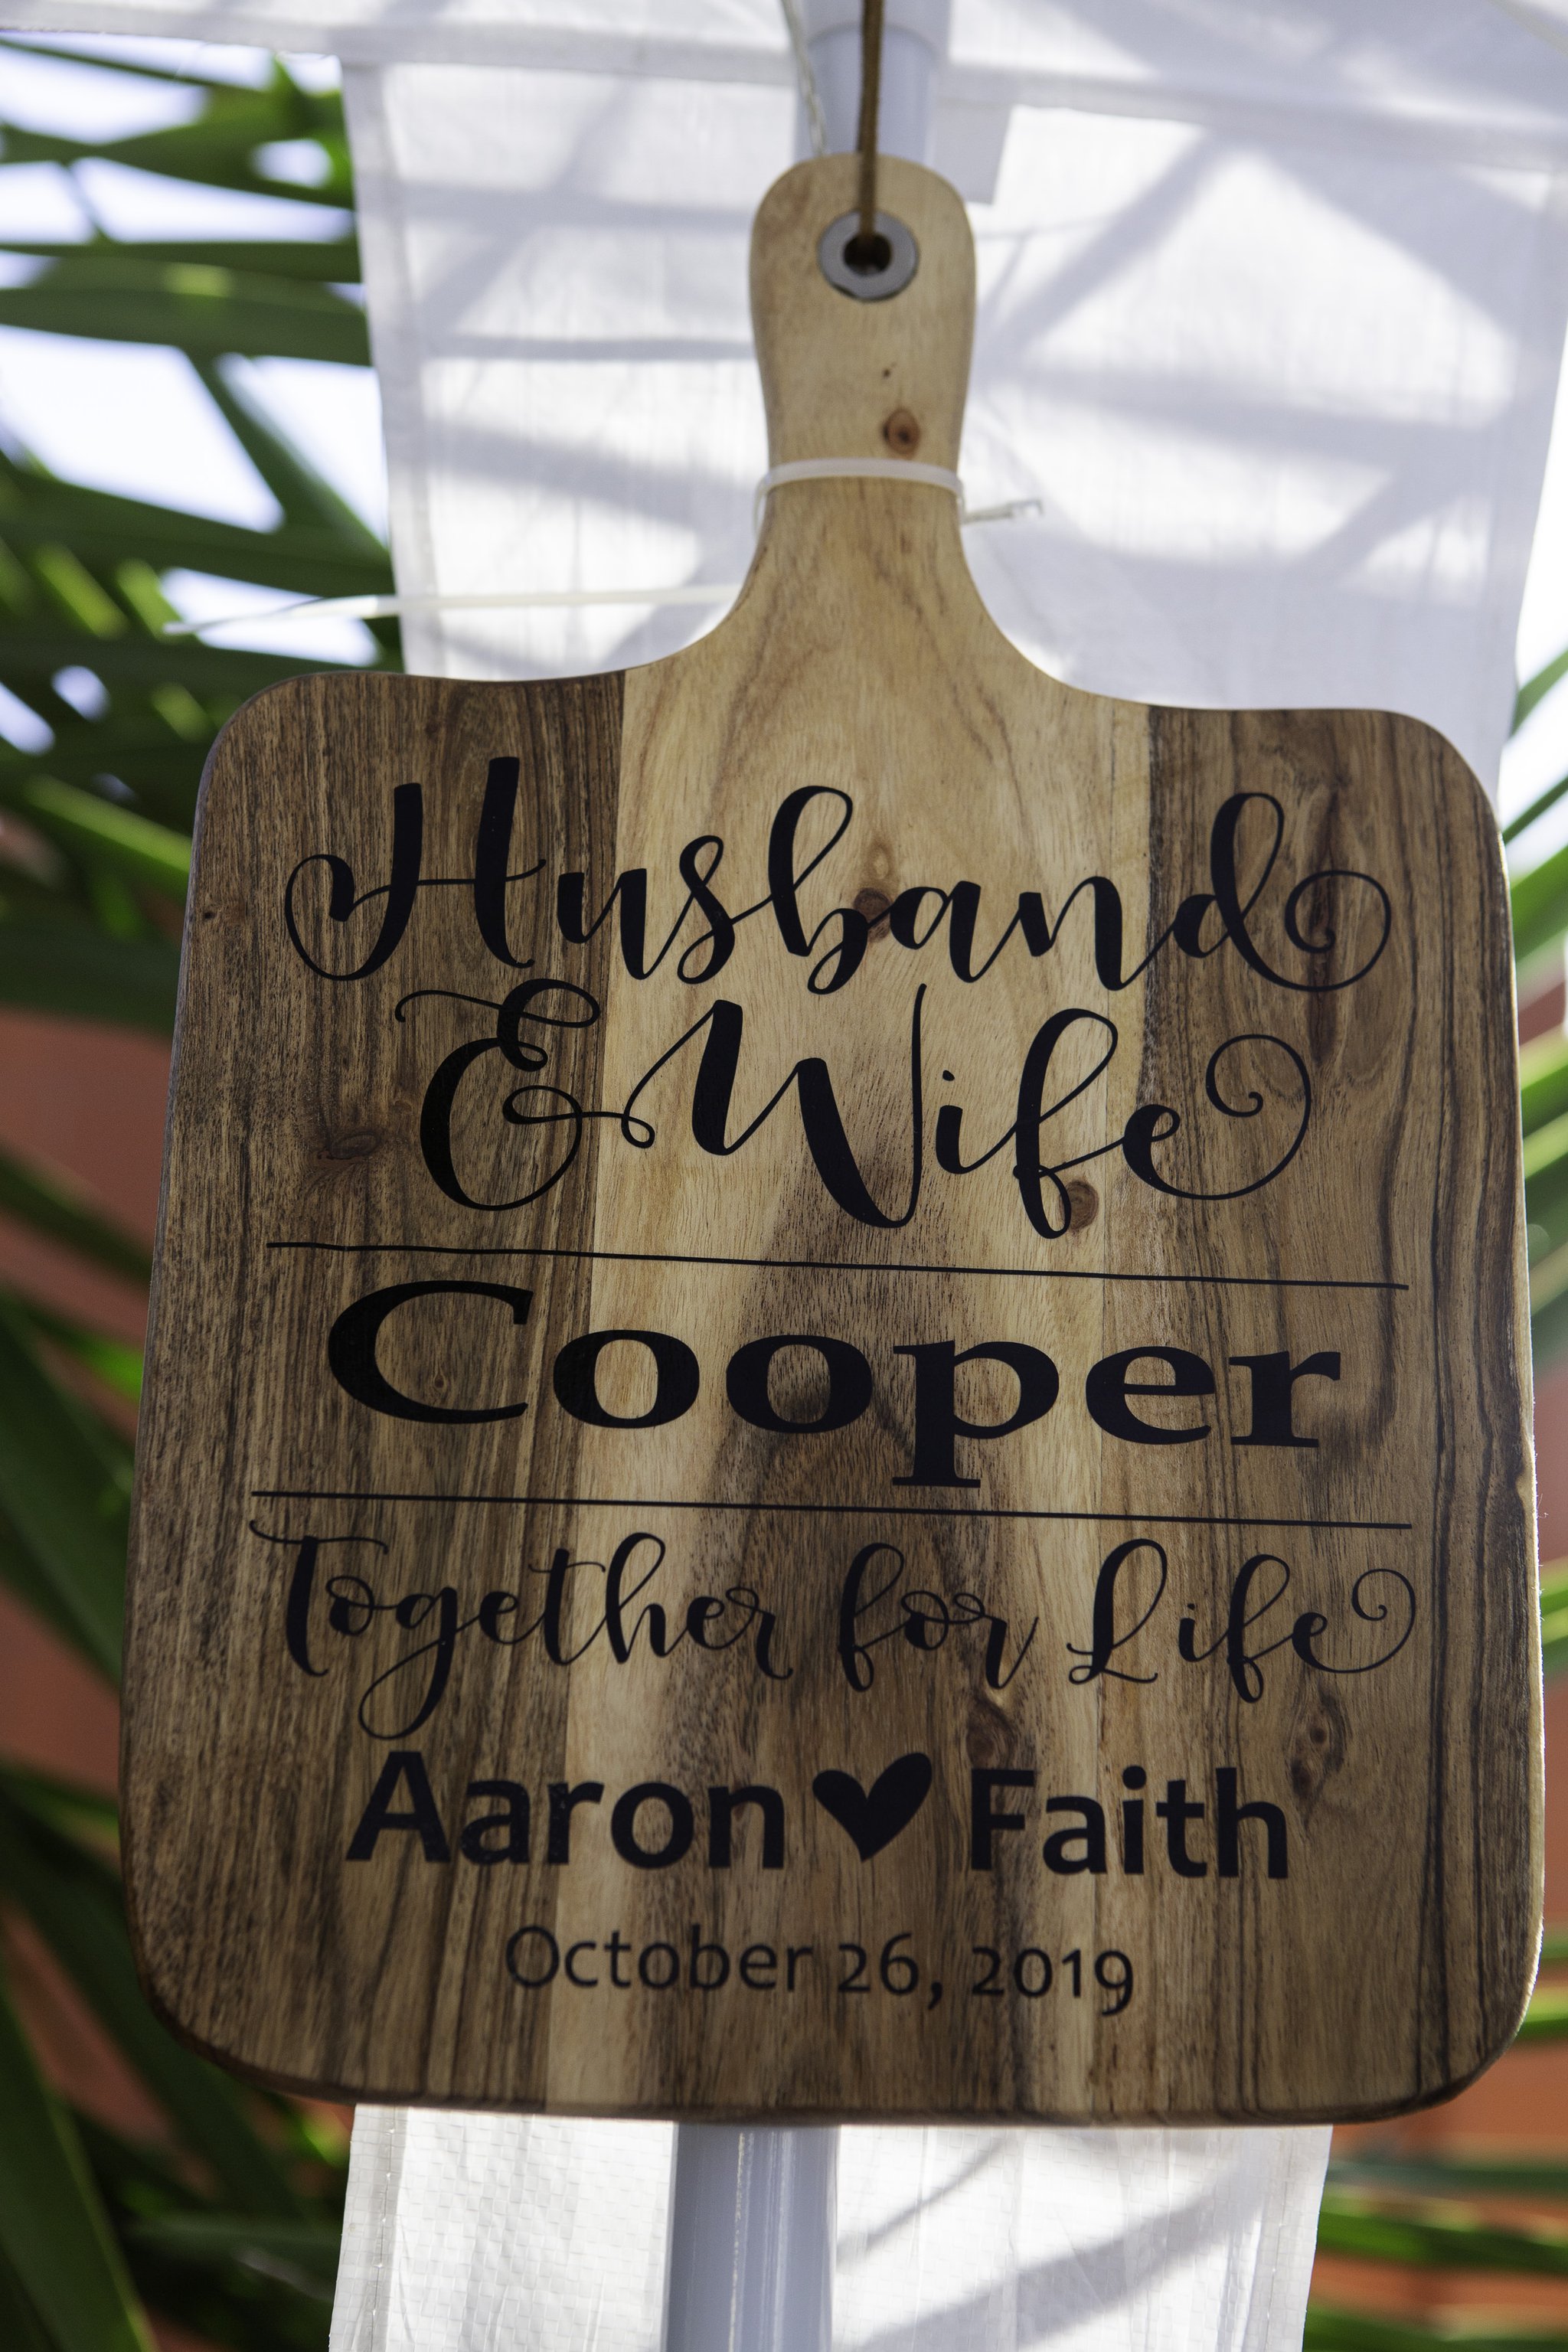 Husband
& Wife
Cooper
Together for Life
Aaron ♥ Faith
October 26, 2019